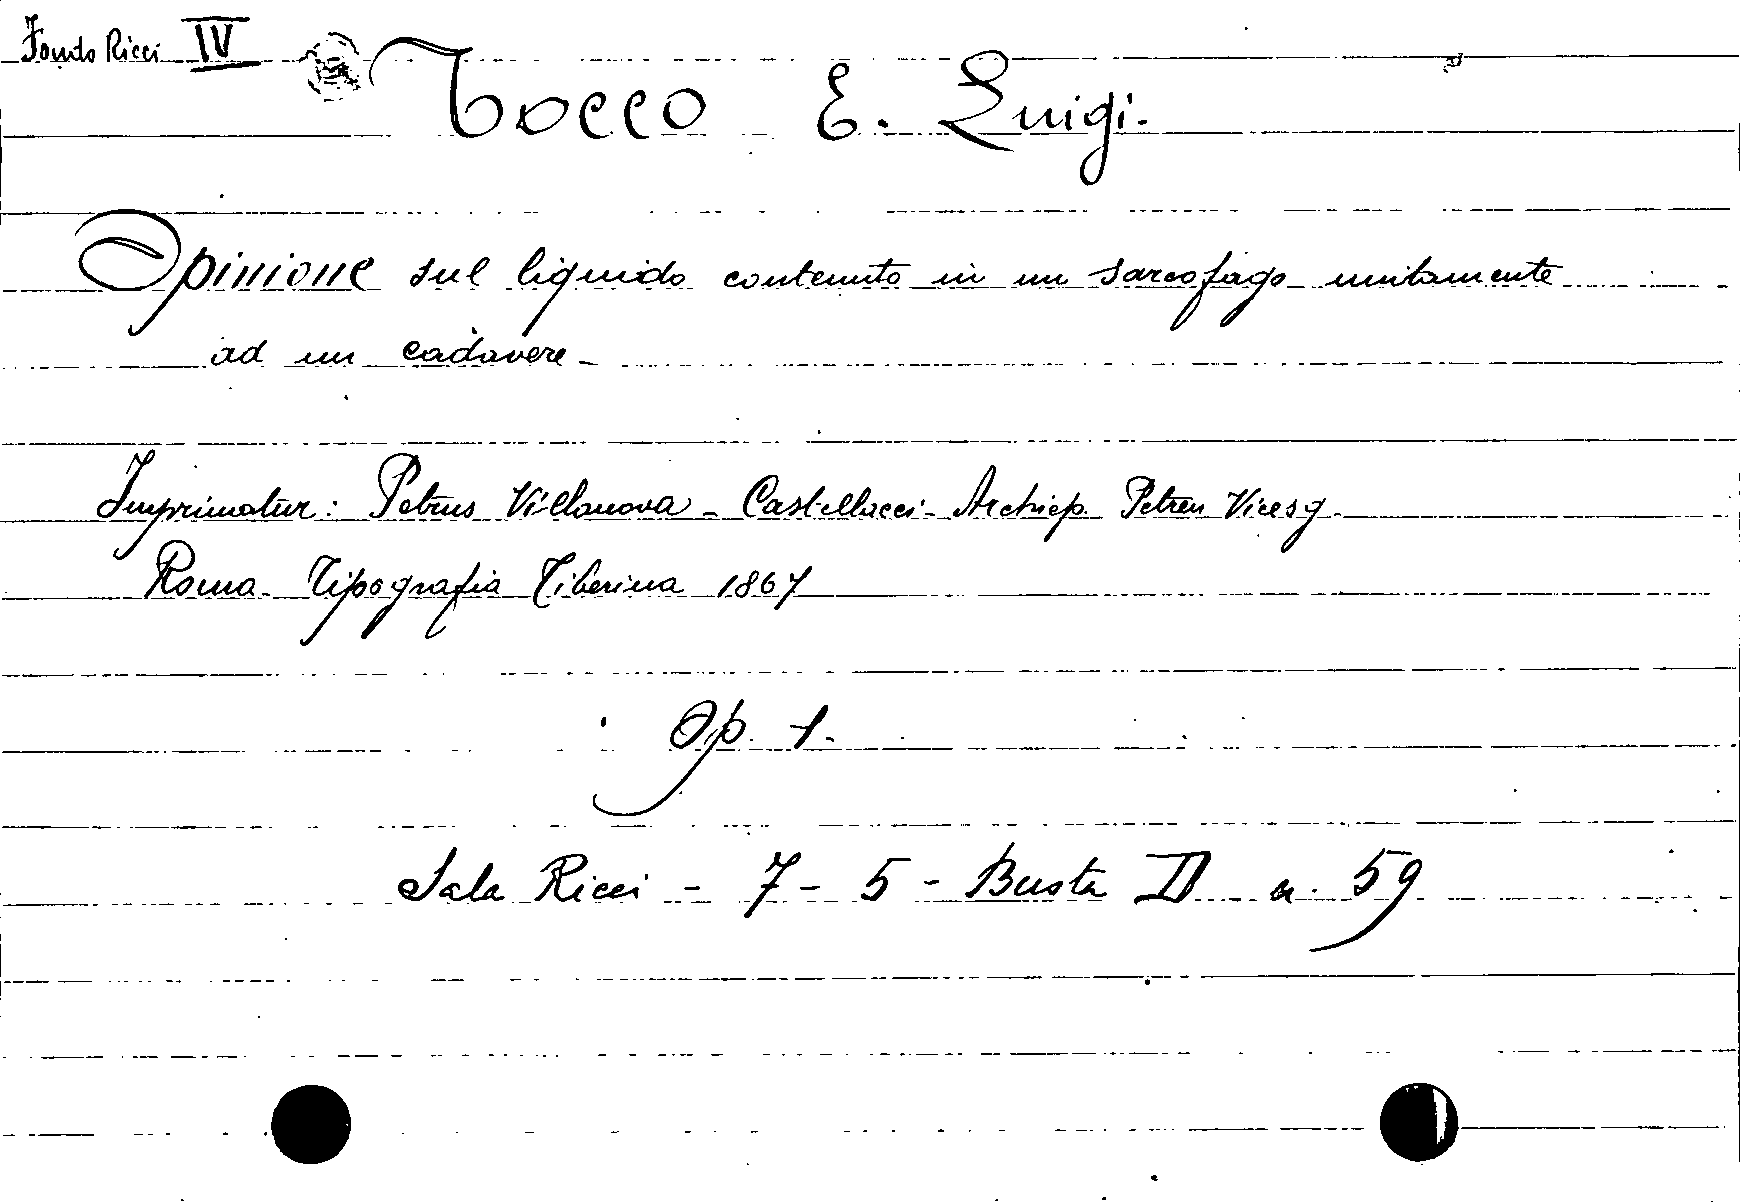 Fondo Ricci IV
Tocco E. Luigi.
Opinione sul liquido contenuto in un sarcofago unitamente
ad un cadavere -
Imprimatur: Petrus Villanova - Castellacci - Archiep. Petren Vicesg.
Roma - Tipografia Tiberina 1867
Op. 1.
Sala Ricci - 7 - 5 - Busta II n. 59